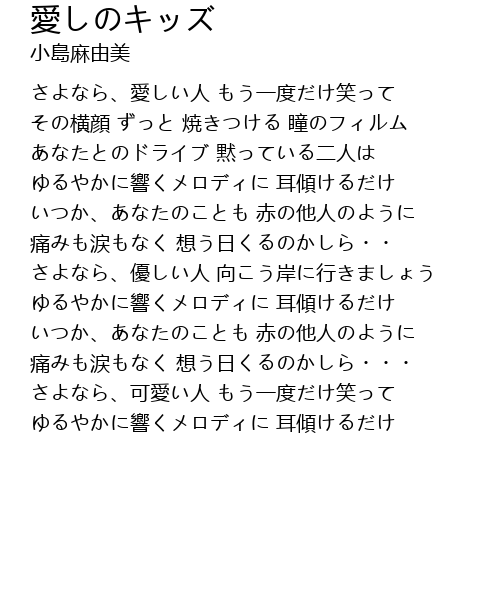 愛しのキッズ
小島麻由美
さよなら、愛しい人 もう一度だけ笑って
その横顔 ずっと 焼きつける 瞳のフィルム
あなたとのドライブ 黙っている二人は
ゆるやかに響くメロディに 耳傾けるだけ
いつか、あなたのことも 赤の他人のように
痛みも涙もなく 想う日くるのかしら・・
さよなら、優しい人 向こう岸に行きましょう
ゆるやかに響くメロディに 耳傾けるだけ
いつか、あなたのことも 赤の他人のように
痛みも涙もなく 想う日くるのかしら・・・
さよなら、可愛い人 もう一度だけ笑って
ゆるやかに響くメロディに 耳傾けるだけ